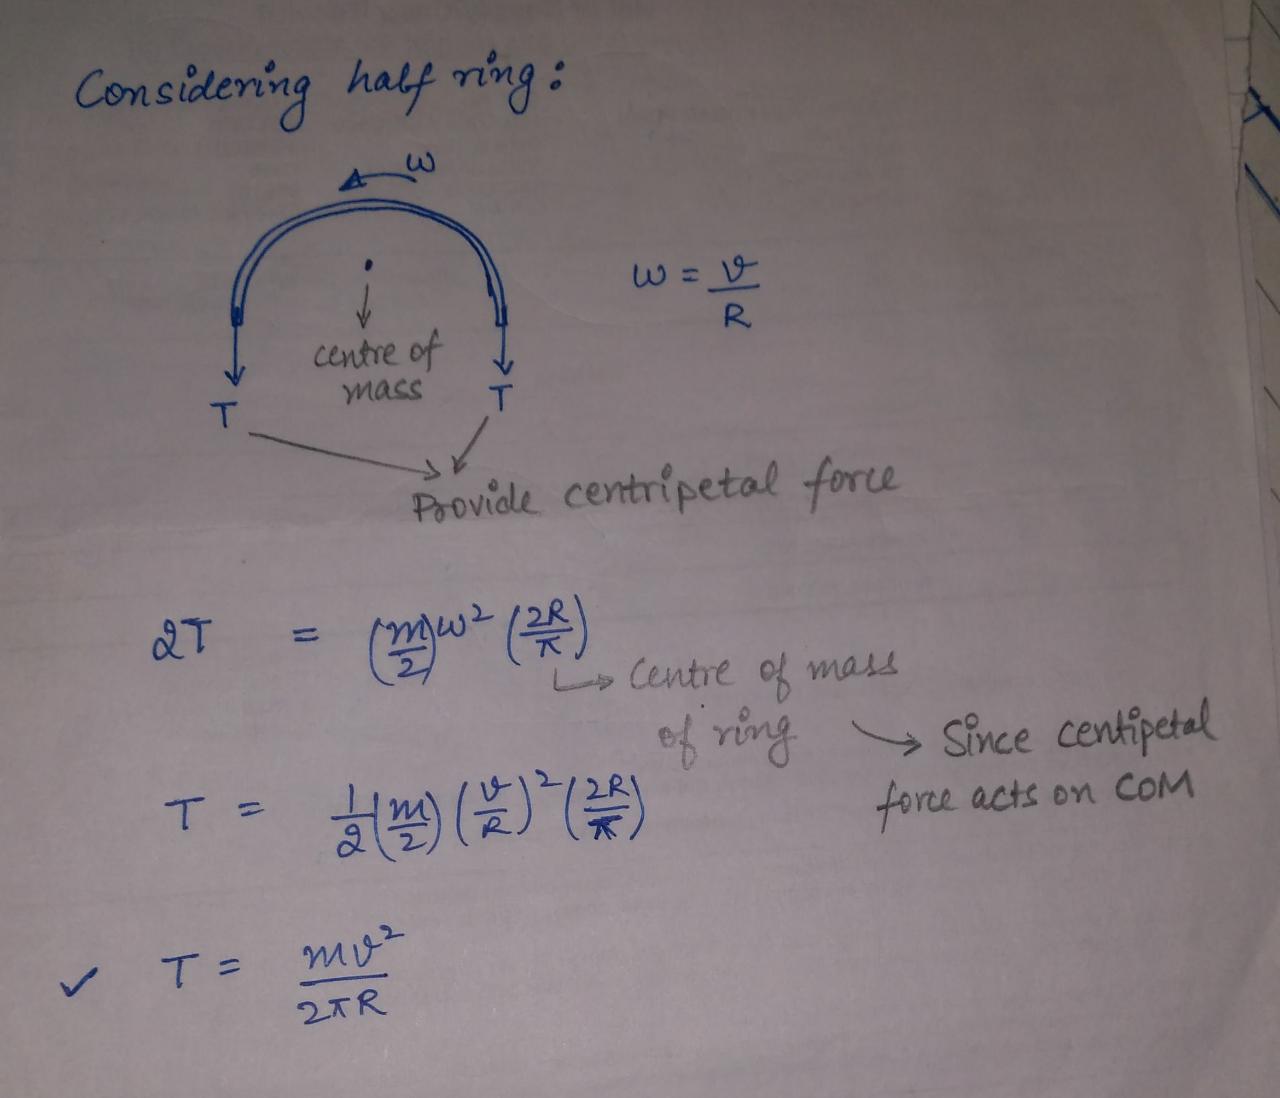 Considering half ring:
ω
ω = v/R
centre of
mass
T T
Provide centripetal force
2T = (m/2)ω² (2R/π)
Centre of mass
of ring
Since centipetal
force acts on COM
T = 1/2 (m/2) (v/R)² (2R/π)
✓ T = mv²/2πR